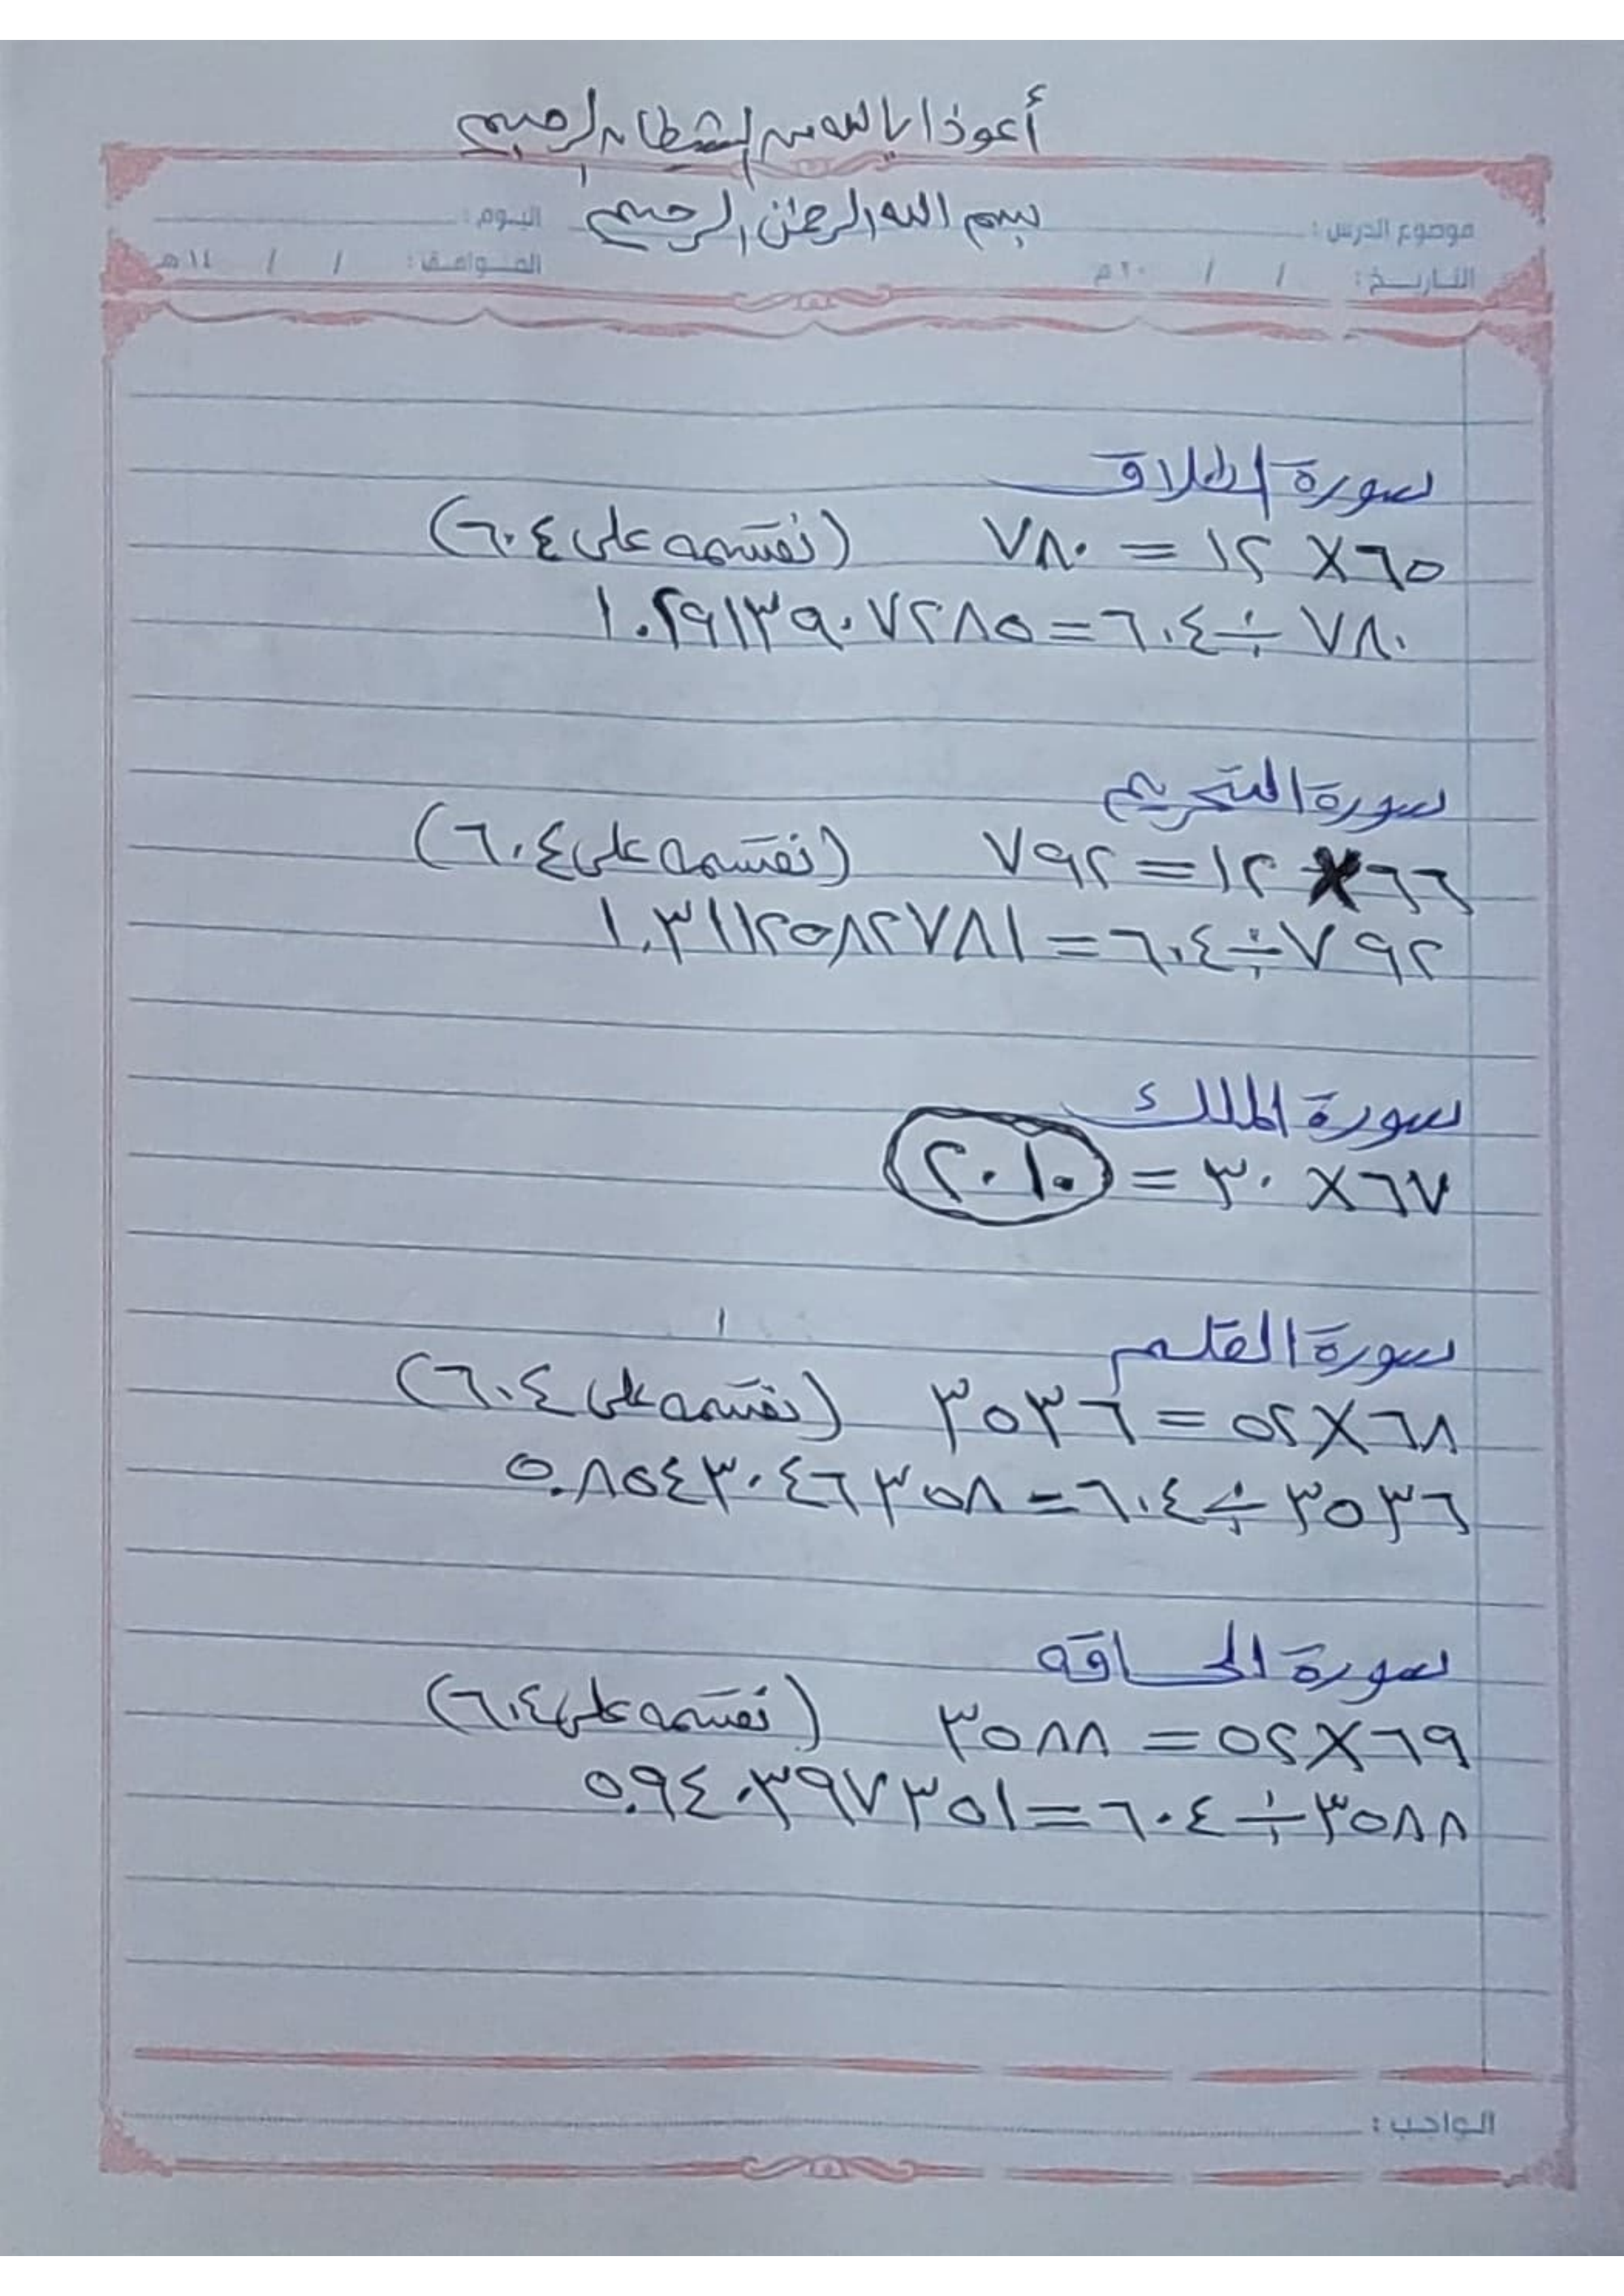 أعوذ بالله من الشيطان الرجيم
بسم الله الرحمن الرحيم
موضوع الدرس : اليوم :
التاريخ : / / ٢٠م الموافق : / / ١٤هـ
سورة الطلاق
٦٥ × ١٢ = ٧٨٠ (نقسمه على ٦٠٤)
٧٨٠ ÷ ٦٠٤ = ١.٢٩١٣٩٠٧٢٨٥
سورة التحريم
٦٦ × ١٢ = ٧٩٢ (نقسمه على ٦٠٤)
٧٩٢ ÷ ٦٠٤ = ١.٣١١٢٥٨٢٧٨١
سورة الملك
٦٧ × ٣٠ = ٢٠١٠
سورة القلم
٦٨ × ٥٢ = ٣٥٣٦ (نقسمه على ٦٠٤)
٣٥٣٦ ÷ ٦٠٤ = ٥.٨٥٤٣٠٤٦٣٥٨
سورة الحاقه
٦٩ × ٥٢ = ٣٥٨٨ (نقسمه على ٦٠٤)
٣٥٨٨ ÷ ٦٠٤ = ٥.٩٤٠٣٩٧٣٥١
الواجب :